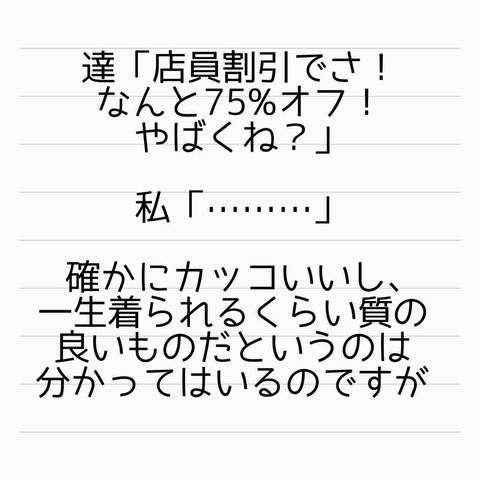 達「店員割引でさ！
なんと75%オフ！
やばくね？」
私「………」
確かにカッコいいし、
一生着られるくらい質の
良いものだというのは
分かってはいるのですが